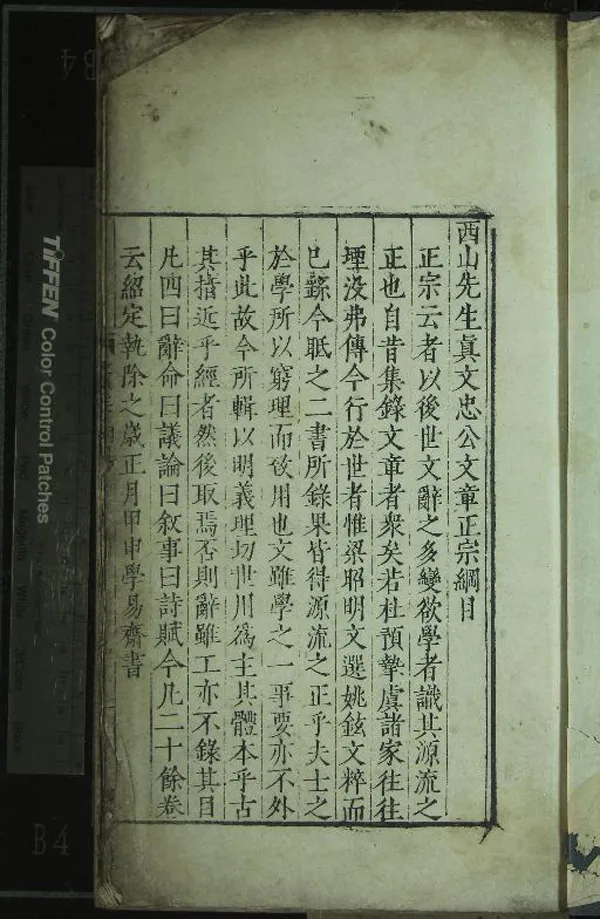 西山先生眞文忠公文章正宗綱目
正宗云者以後世文辭之多變欲學者識其源流之
正也自昔集錄文章者衆矣若杜預摯虞諸家往往
堙没弗傳今行於世者惟梁昭明文選姚鉉文粹而
已繇今眂之二書所錄果皆得源流之正乎夫士之
於學所以窮理而致用也文雖學之一事要亦不外
乎此故今所輯以明義理切世用爲主其體本乎古
其指近乎經者然後取焉否則辭雖工亦不錄其目
凡四曰辭命曰議論曰敘事曰詩賦今凡二十餘卷
云紹定執除之歲正月甲申學易齋書
TIFFEN Color Control Patches
B4
B4